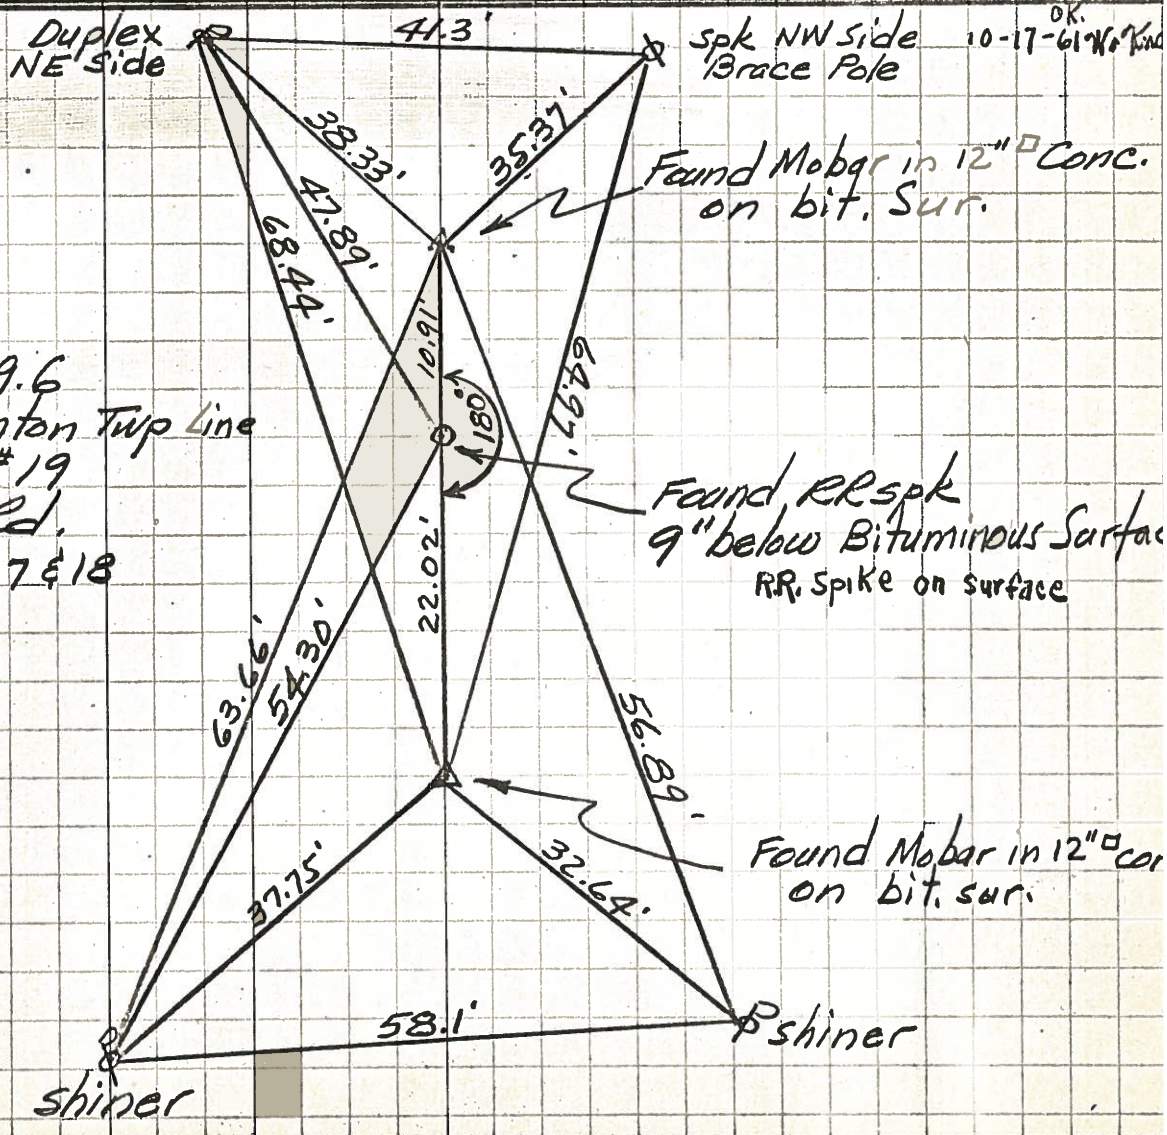 Duplex
NE Side
41.3'
Spk NW Side
Brace Pole
OK.
10-17-61
38.33'
35.37'
47.89'
68.44'
Found Mobar in 12" □ Conc.
on bit. Sur.
10.91'
180°
64.97'
9.6
nton Twp Line
#19
d.
7 & 18
Found RR spk
9" below Bituminous Surfac
R.R. Spike on surface
22.02'
63.66'
54.30'
56.89'
37.75'
32.64'
Found Mobar in 12" □ con
on bit. sur.
58.1'
shiner
shiner